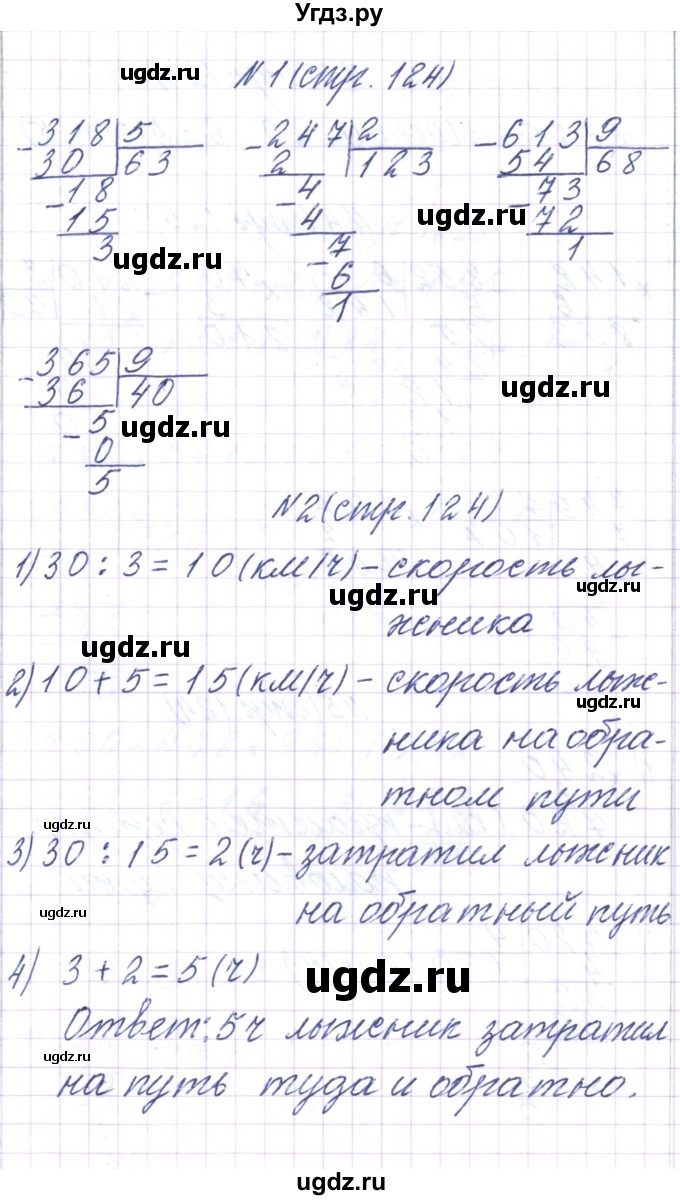 Угдз.ру
ugdz.ru
N 1 (стр. 124)
- 318 | 5   - 247 | 2   - 613 | 9
30 | 63   2 | 123   54 | 68
- 18   - 4   - 73
15   4   72
3   - 7   1
6
1
ugdz.ru
ugdz.ru
- 365 | 9
36 | 40
- 5
0
5
ugdz.ru
ugdz.ru
N2 (стр. 124)
1) 30 : 3 = 10 (км/ч) - скорость лы-
жника
ugdz.ru
ugdz.ru
ugdz.ru
2) 10 + 5 = 15 (км/ч) - скорость лыж-
ника на обра-
тном пути
ugdz.ru
ugdz.ru
3) 30 : 15 = 2 (ч) - затратил лыжник
на обратный путь
ugdz.ru
4) 3 + 2 = 5 (ч)
ugdz.ru
Ответ: 5 ч лыжник затратил
на путь туда и обратно.
ugdz.ru
ugdz.ru